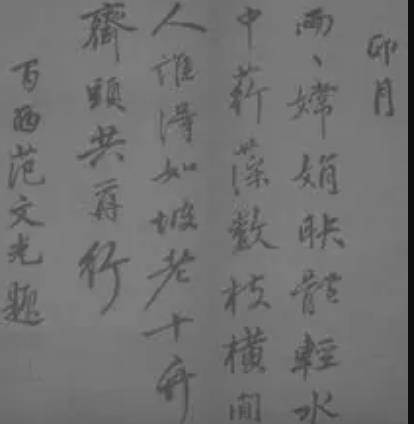 卯月
兩、嫦娟映體輕水
中荇藻數枝横間
人誰得如坡老十
齊頭共行
百范文光題